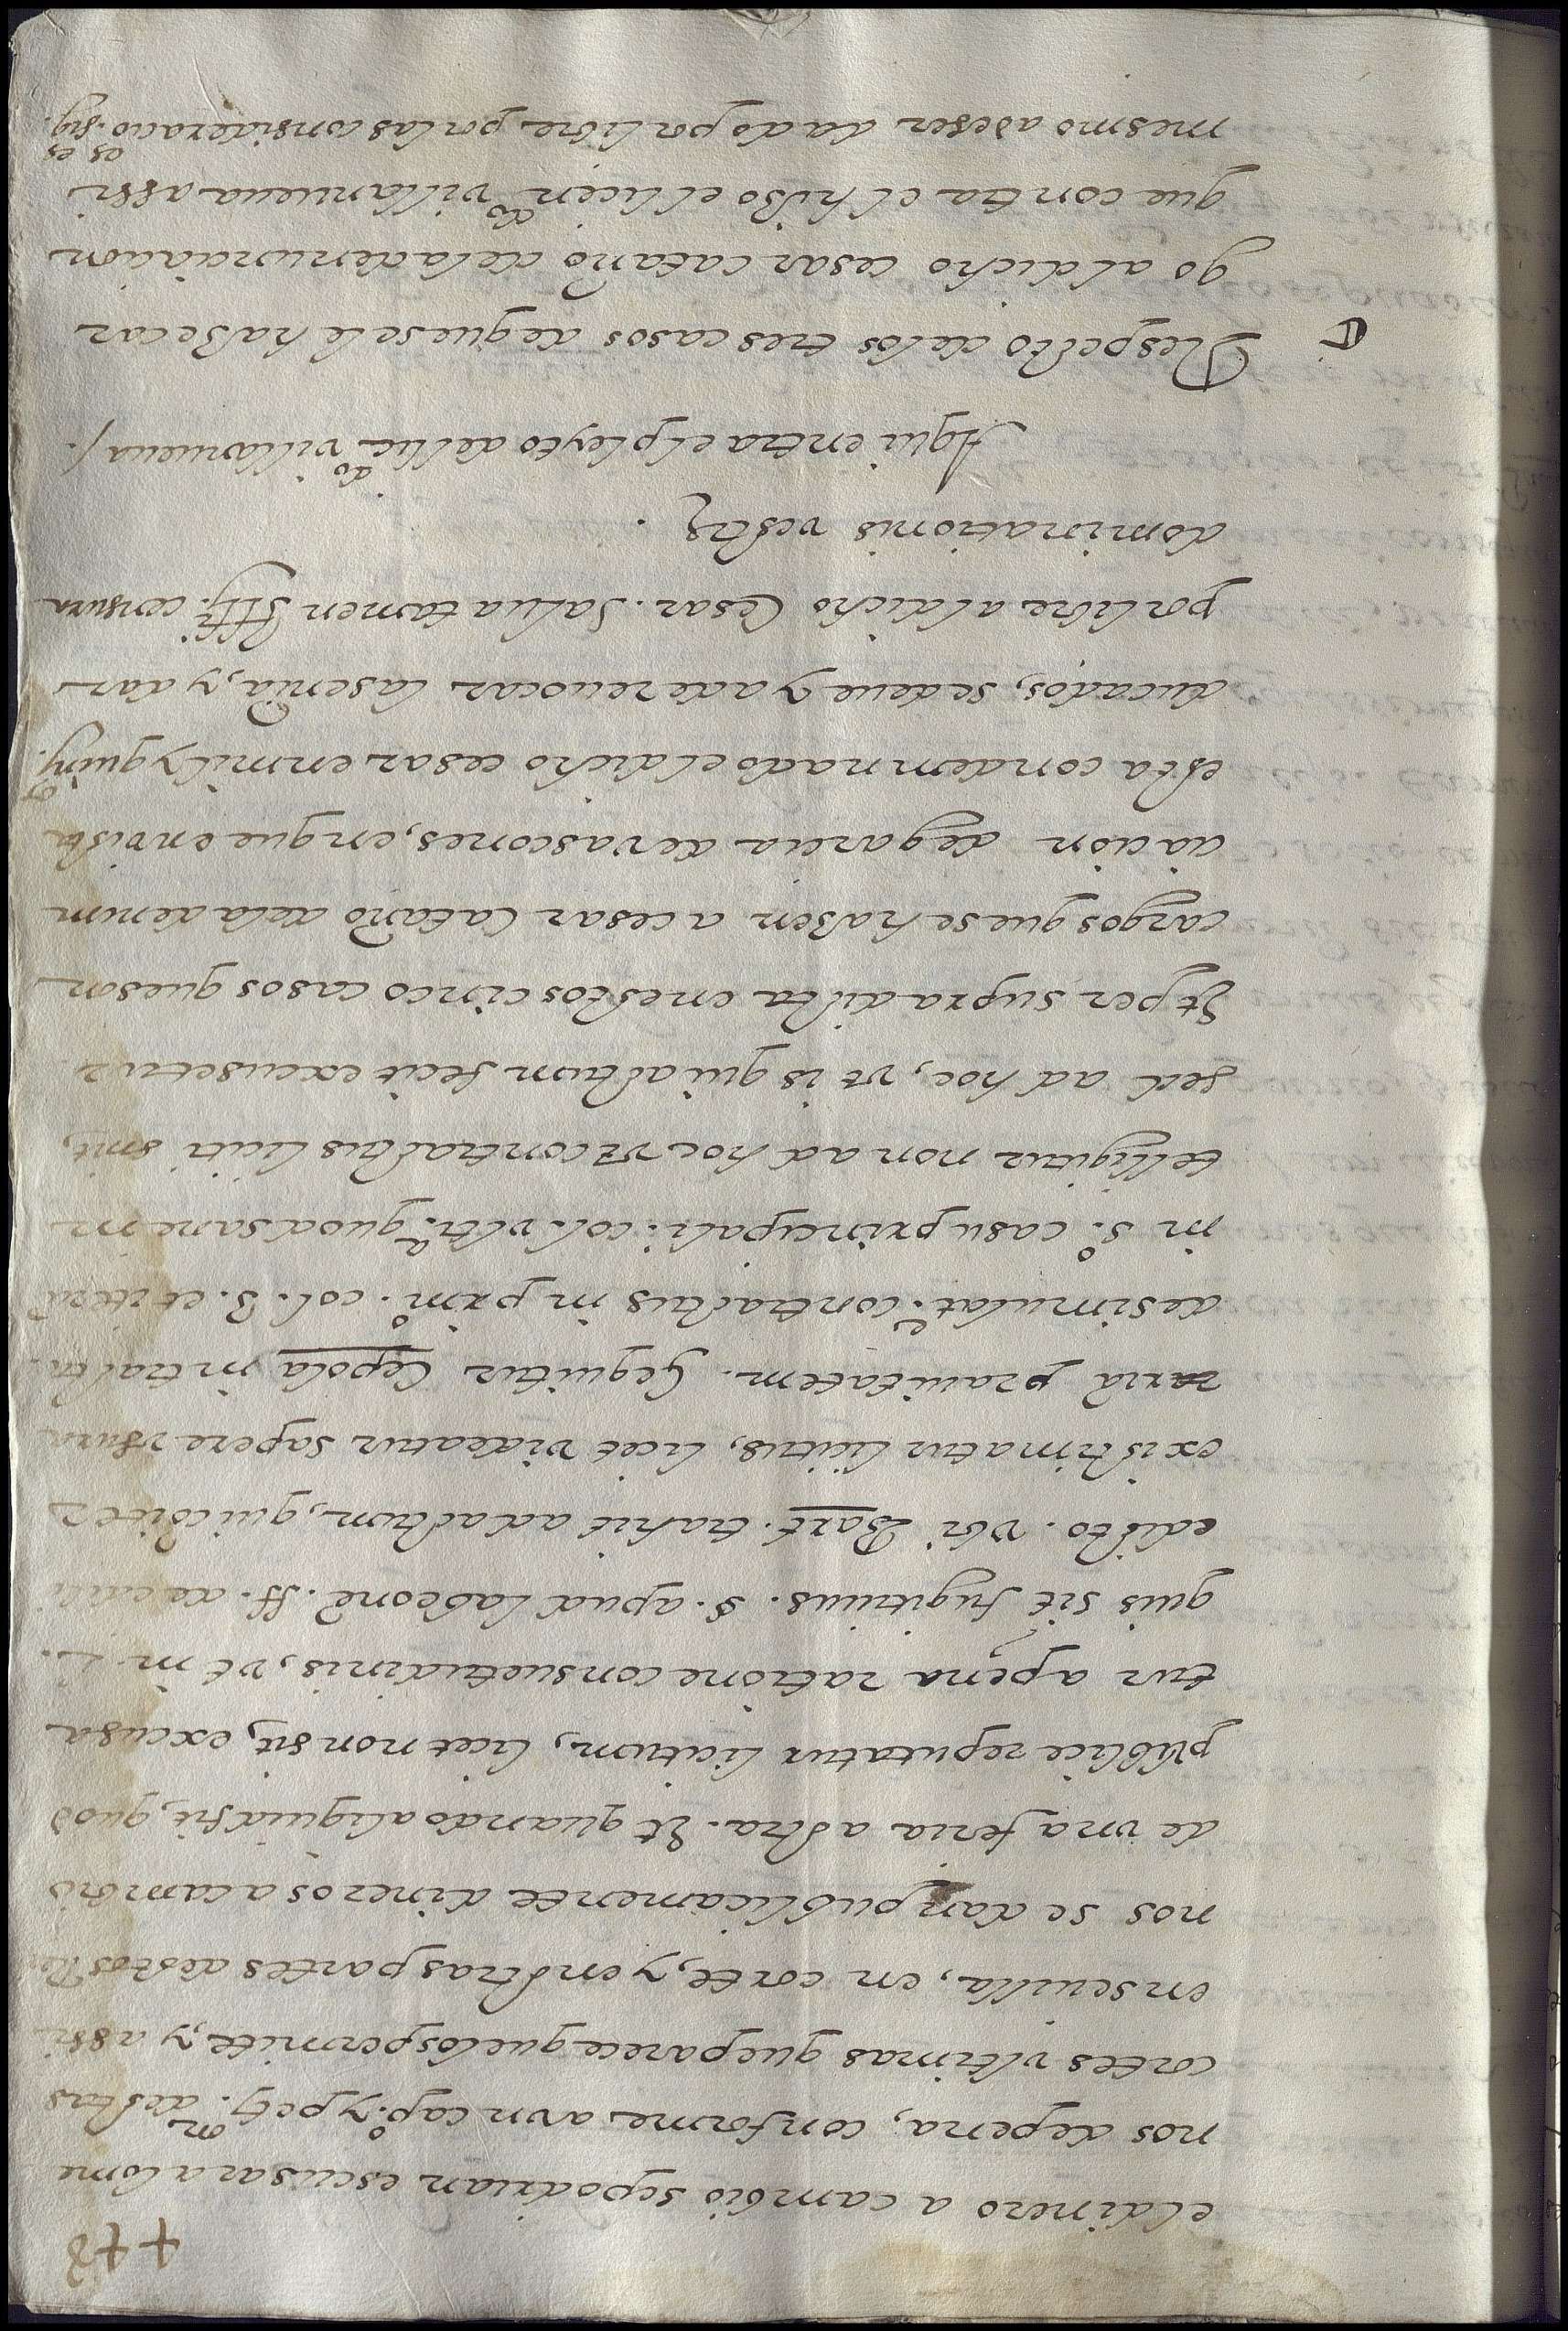 ++8
el dinero a cambio se podrian escusar a lo me
nos de pena, conforme a un cap.º y petiᵒⁿ. destas
cortes vltimas que parece que los permite, y assi
en seuilla, en corte, y en otras partes destos Rey
nos se dan publicamente dineros a cambio
de vna feria a otra. Et quando aliquid fit, quod
publice reputatur licitum, licet non sit, excusa
tur a pena ratione consuetudinis, vt in l.
quis sit fugitiuus. §. apud labeonē. ff. de edili
edicto. vbi Bart. trahit ad actum, qui cōiter
existimatur licitus, licet videatur sapere vsura
riā prauitatem. Sequitur Cepola in tracta.
de simulat.ᵉ contractus in prim.º col. 3. et iterū
in s.º casu principali. col. vltiᵃ. quod sane in
telligitur non ad hoc vt contractus liciti sint,
sed ad hoc, vt is qui actum fecit excusetur
Et per supradicta en estos cinco casos que son
cargos que se hazen a cesar Cataño de la denun
ciacion de garcia de vascones, en que en vista
esta condemnado el dicho cesar en mil y quinyᵒˢ.
ducados, se deue y a de reuocar la senīa, y dar
por libre al dicho Cesar. Salua tamen censura
dominationis vestrę.
Aqui entra el pleyto del licᵈᵒ villanueua /.
Respecto de los tres casos de que se le haze car
go al dicho cesar cataño de la denunciacion
que contra el hizo el licenᵈᵒ villanueua assi
mesmo a de ser dado por libre por las consideracioᵉˢ. sigᵉˢ.